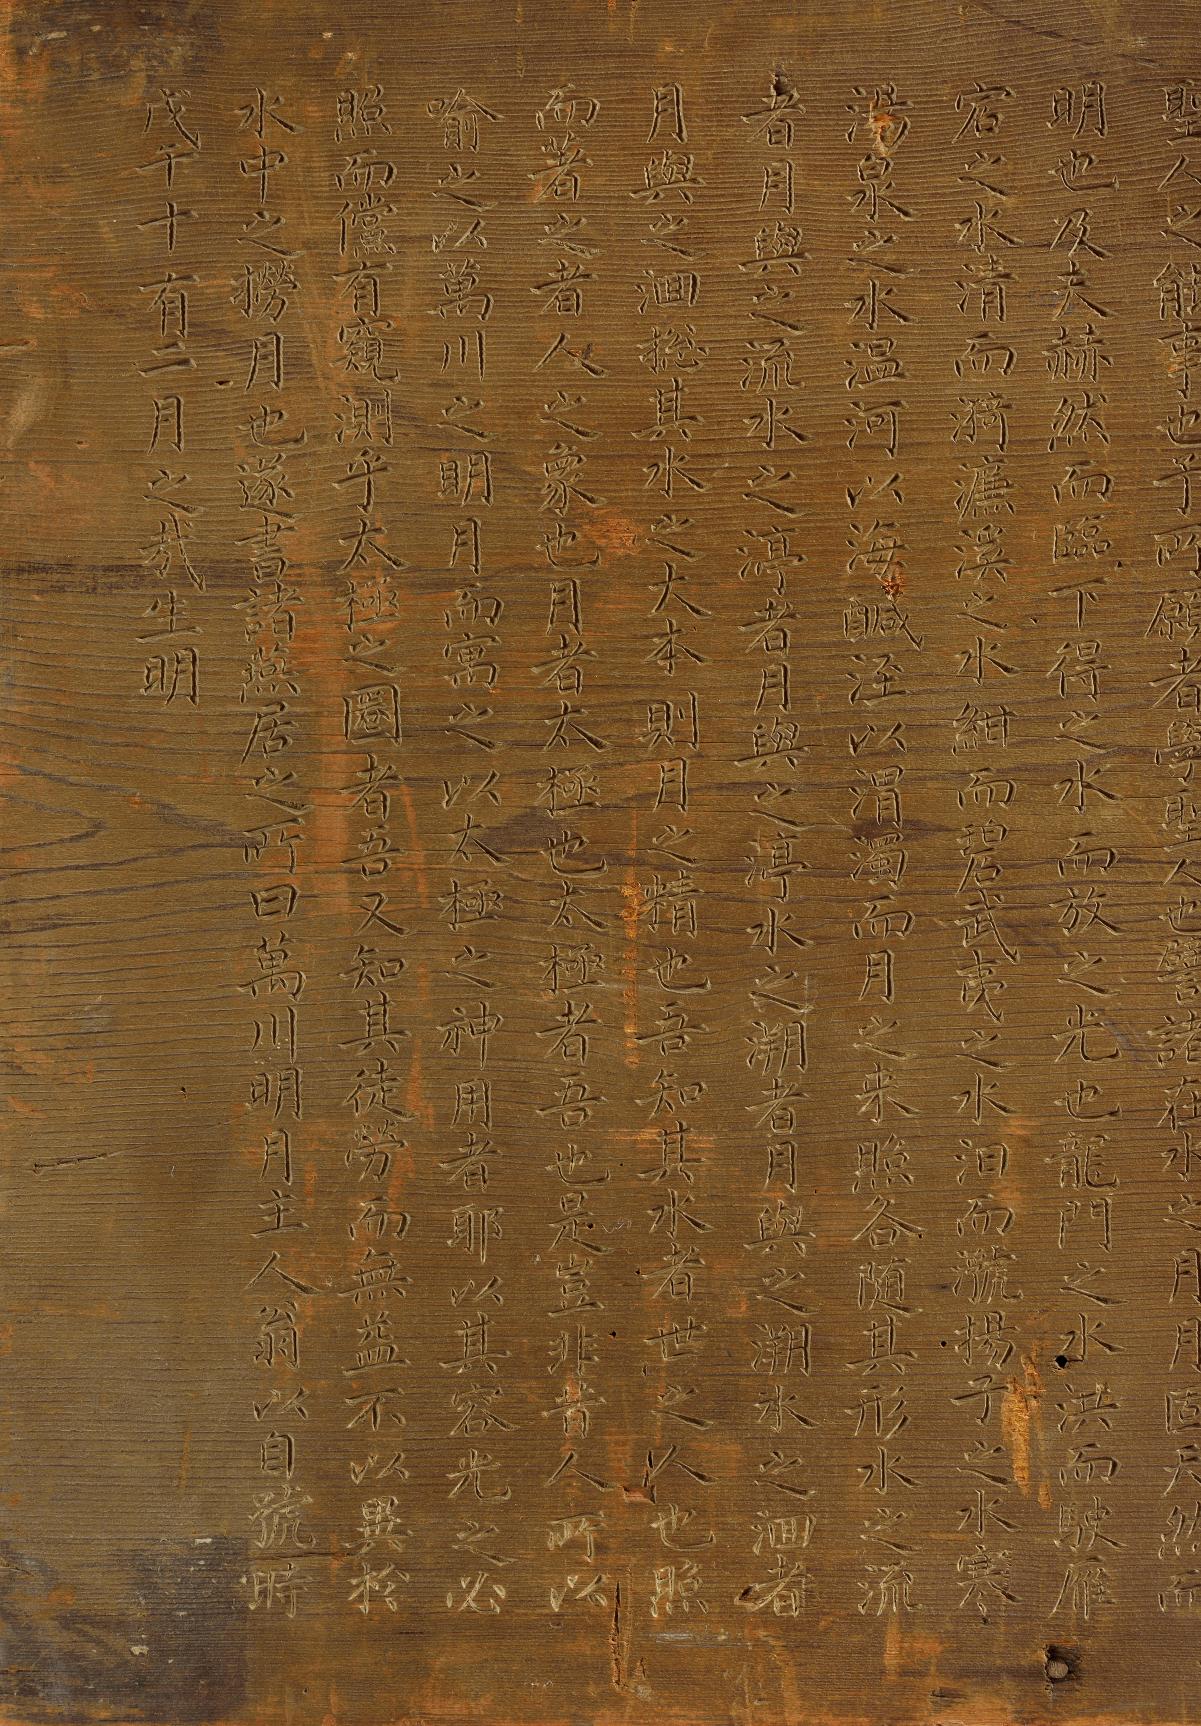 聖人之能事也予所願者學聖人也譬諸在水之月月固天然而
明也及夫赫然而臨下得之水而放之光也龍門之水洪而駛雁
宕之水清而漪濂溪之水紺而碧武夷之水汩而㶁揚子之水寒
湯泉之水温河以海鹹涇以渭濁而月之来照各随其形水之流
者月與之流水之渟者月與之渟水之溯者月與之溯水之洄者
月與之洄揔其水之大本則月之精也吾知其水者世之人也照
而著之者人之象也月者太極也太極者吾也是豈非昔人所以
喻之以萬川之明月而寓之以太極之神用者耶以其容光之必
照而儻有窺測乎太極之圈者吾又知其徒勞而無益不以異於
水中之撈月也遂書諸燕居之所曰萬川明月主人翁以自號時
戊午十有二月之哉生明